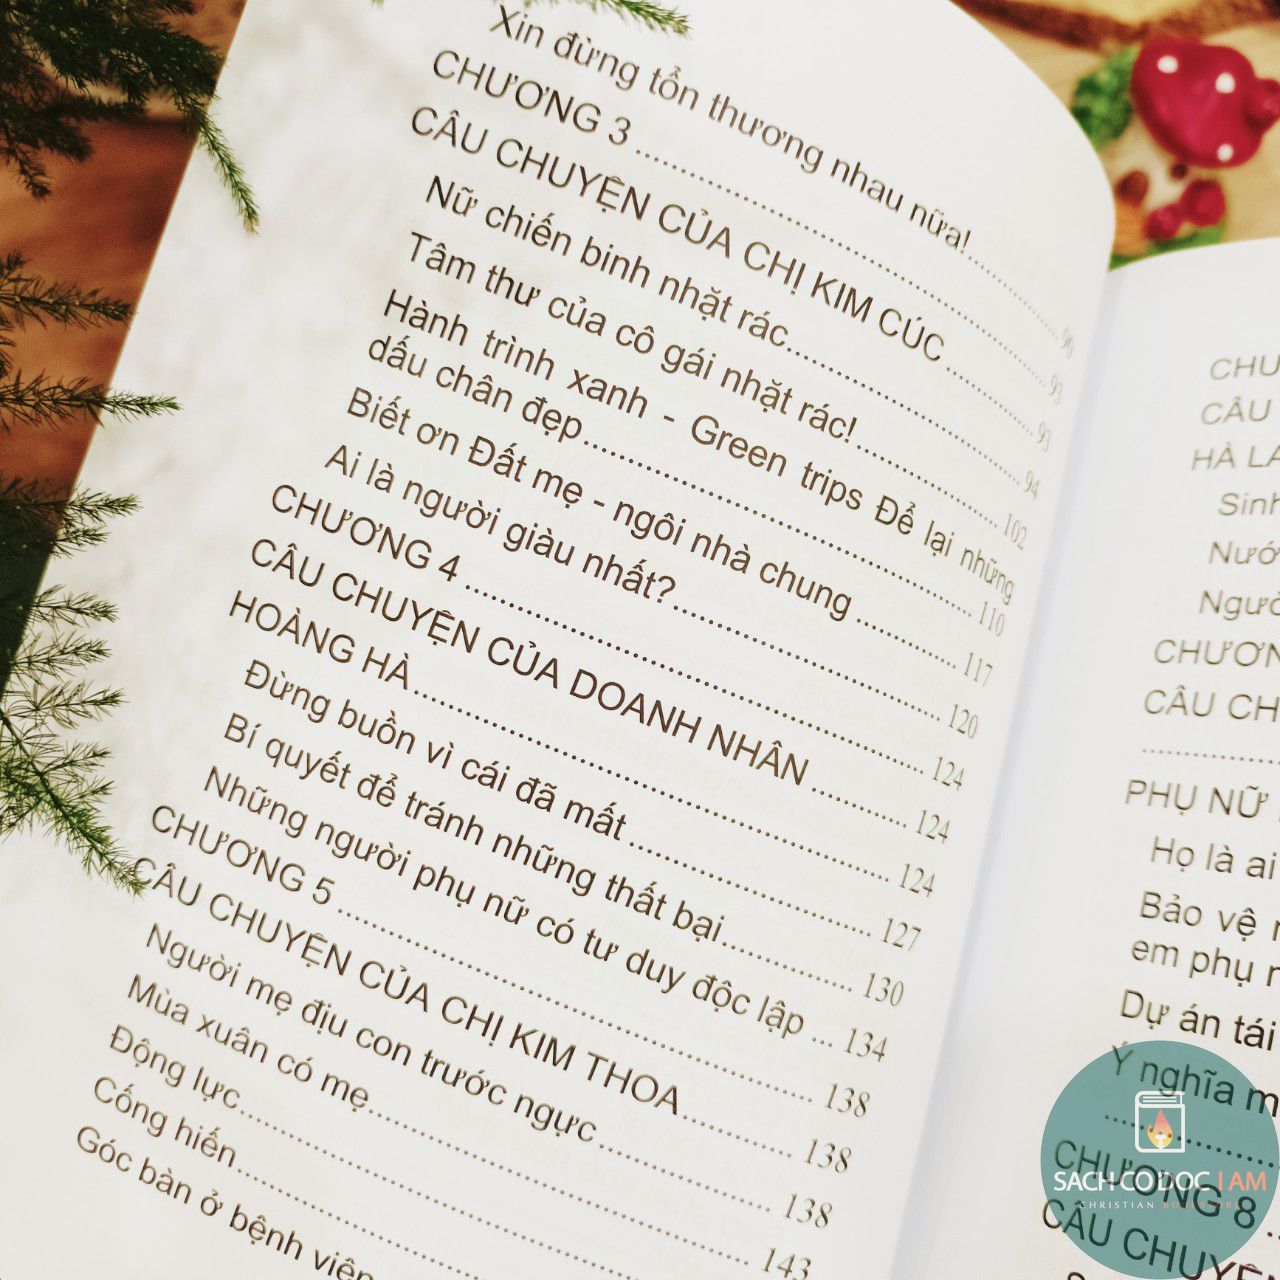 Xin đừng tổn thương nhau nữa!.......... 90
CHƯƠNG 3 .......... 93
CÂU CHUYỆN CỦA CHỊ KIM CÚC .......... 93
Nữ chiến binh nhặt rác.......... 94
Tâm thư của cô gái nhặt rác!.......... 102
Hành trình xanh - Green trips Để lại những
dấu chân đẹp.......... 110
Biết ơn Đất mẹ - ngôi nhà chung .......... 117
Ai là người giàu nhất?.......... 120
CHƯƠNG 4 .......... 124
CÂU CHUYỆN CỦA DOANH NHÂN .......... 124
HOÀNG HÀ.......... 124
Đừng buồn vì cái đã mất .......... 127
Bí quyết để tránh những thất bại.......... 130
Những người phụ nữ có tư duy độc lập ... 134
CHƯƠNG 5 .......... 138
CÂU CHUYỆN CỦA CHỊ KIM THOA.......... 138
Người mẹ địu con trước ngực.......... 138
Mùa xuân có mẹ.......... 143
Động lực..........
Cống hiến..........
Góc bàn ở bệnh viện
CÂU
HÀ
CÂU
PHỤ NỮ
Họ là ai
Bảo vệ
em phụ
Dự án tái
Ý nghĩa
CHƯƠNG 8
CÂU CHUYỆN
SACH CO DOC I AM
CHRISTIAN